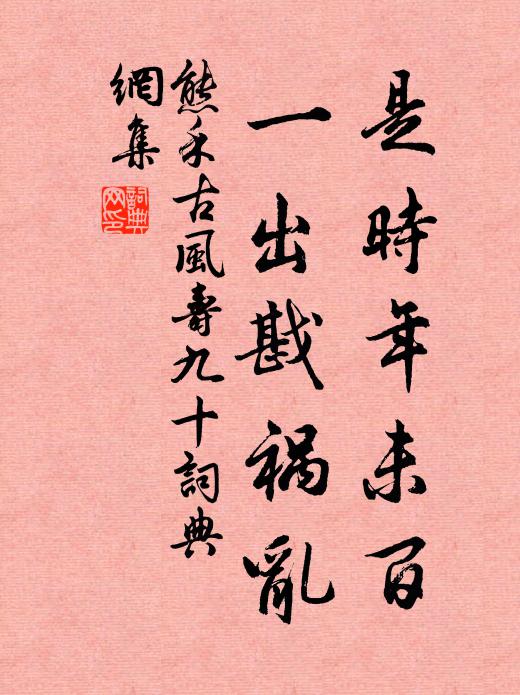 是時年未百
一出戡禍亂
熊禾古風壽九十詞典
網集
詞典
网印